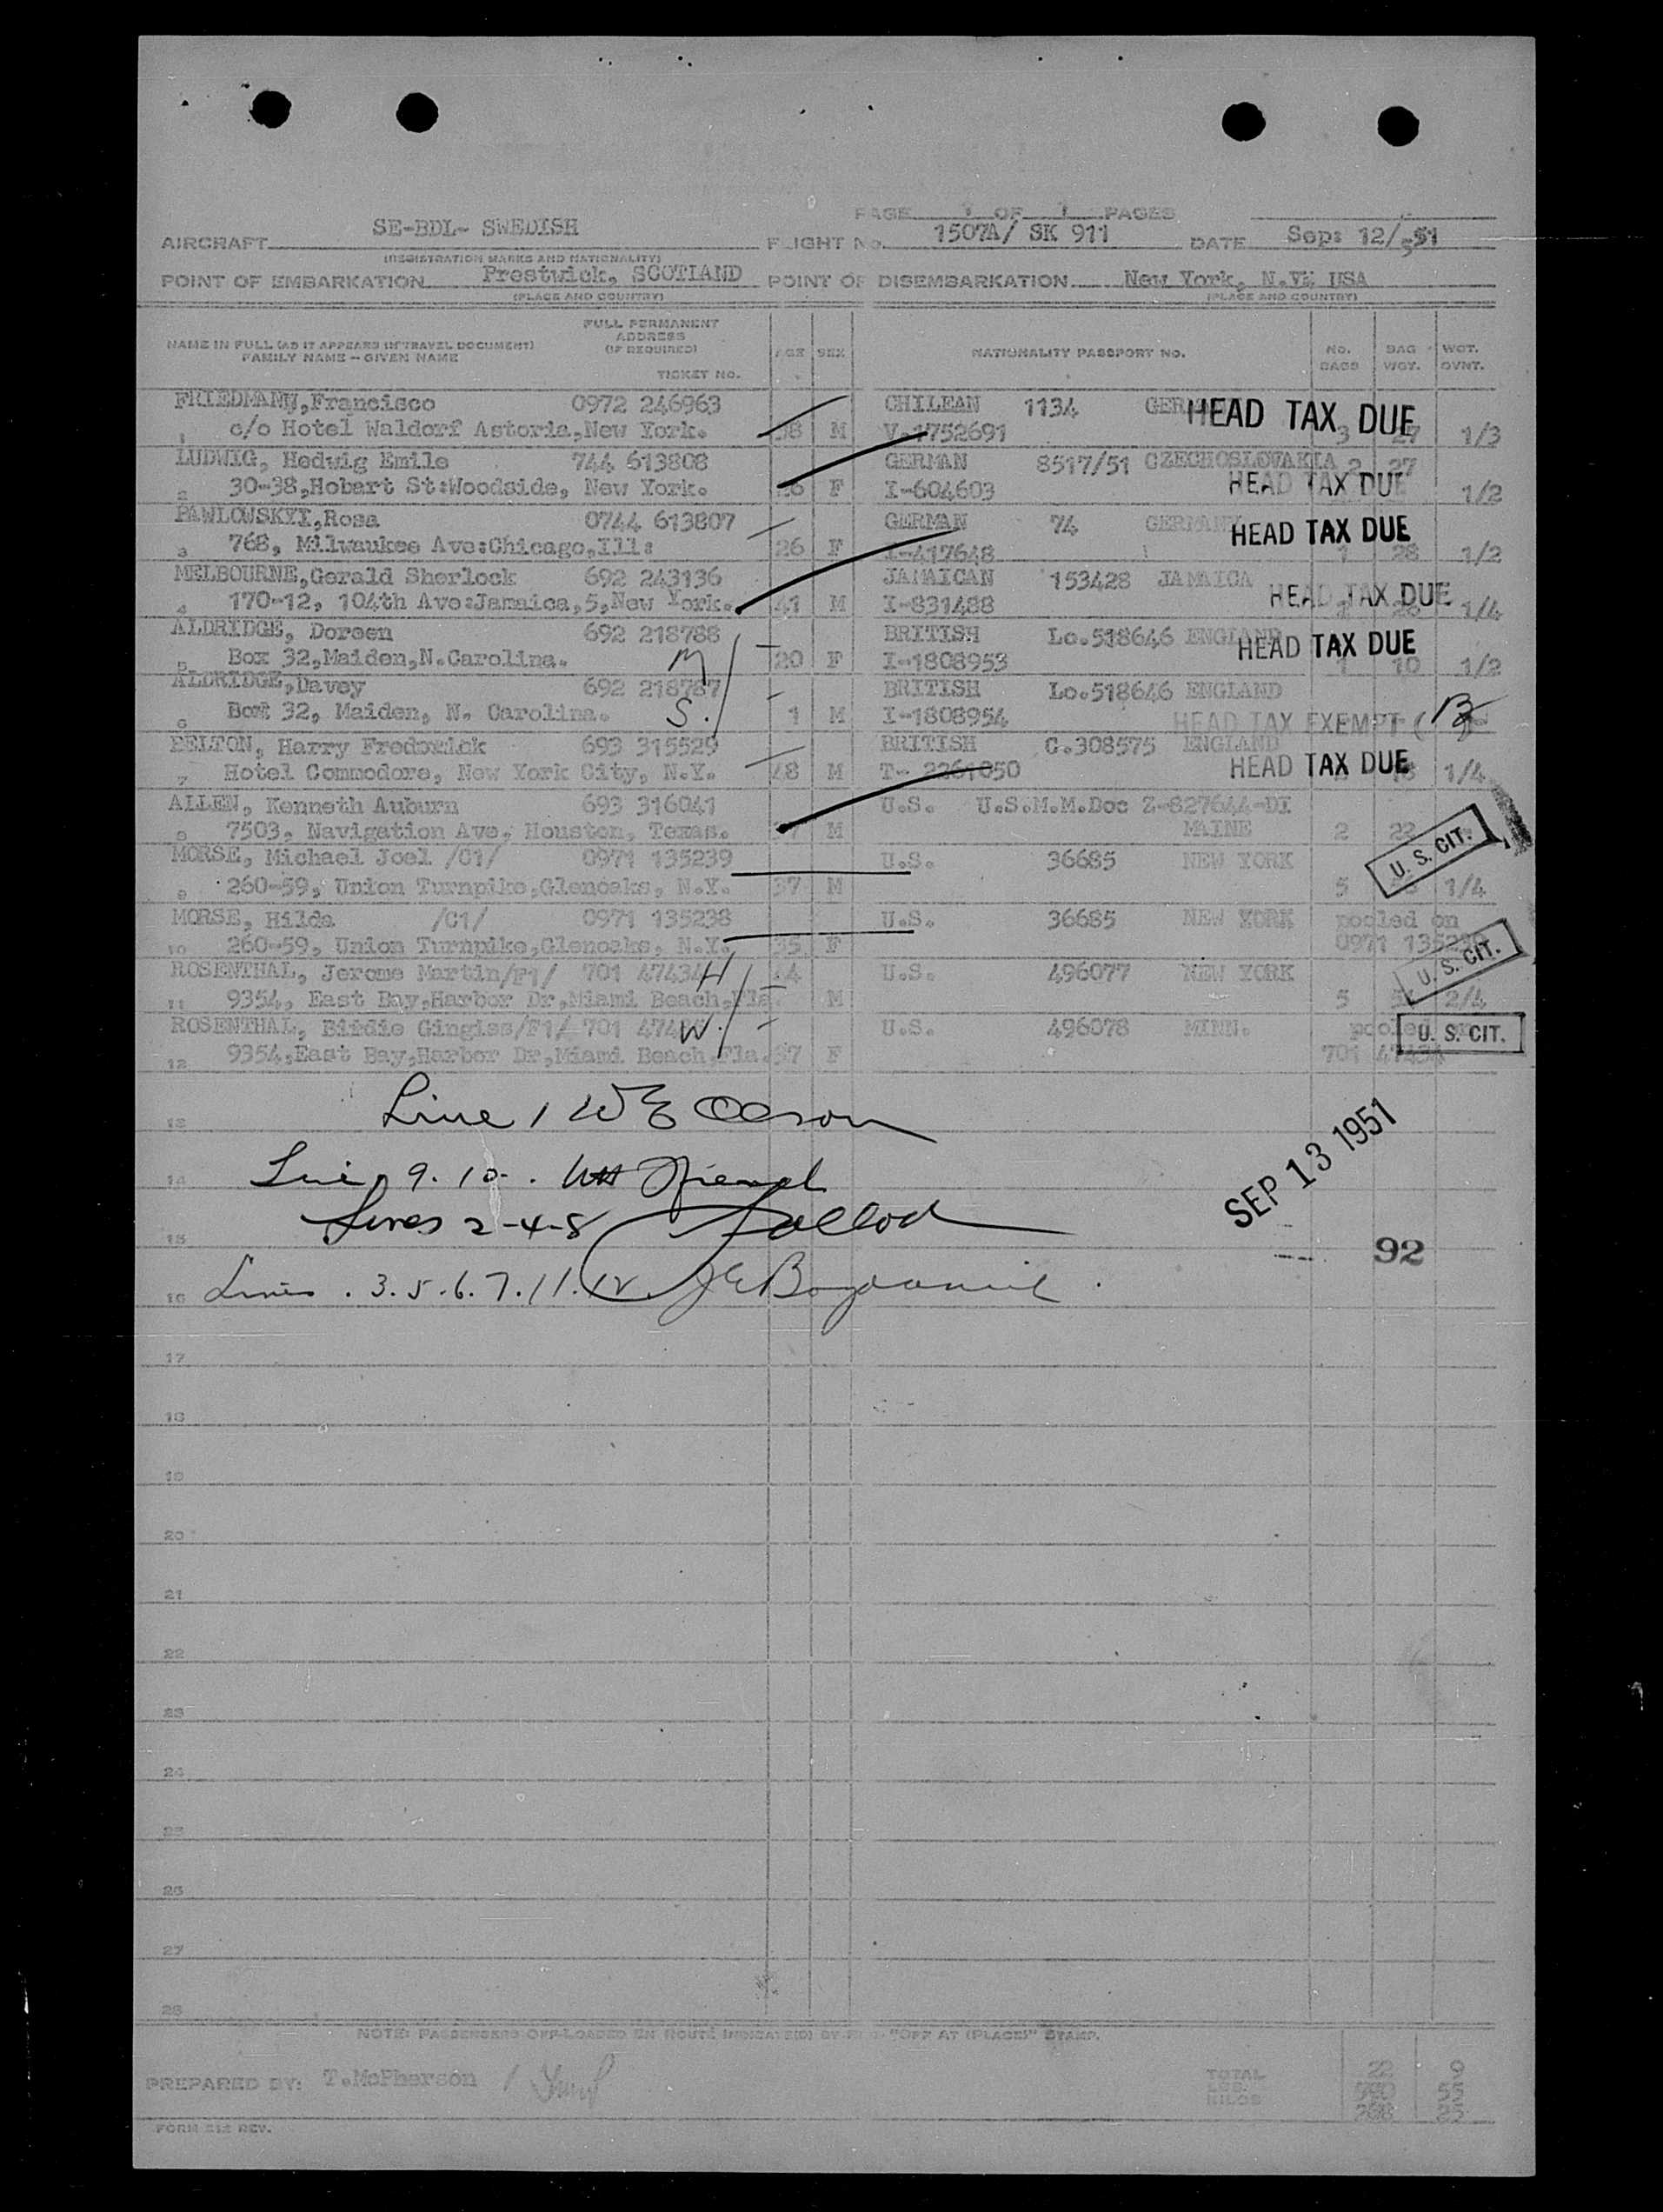 PAGE 1 OF 1 PAGES
AIRCRAFT SE-BDL- SWEDISH FLIGHT No. 1507A/ SK 911 DATE Sep: 12/51
(REGISTRATION MARKS AND NATIONALITY)
POINT OF EMBARKATION Prestwick, SCOTLAND POINT OF DISEMBARKATION New York, N.Y. USA
(PLACE AND COUNTRY) (PLACE AND COUNTRY)
NAME IN FULL (AS IT APPEARS IN TRAVEL DOCUMENT) FAMILY NAME - GIVEN NAME FULL PERMANENT ADDRESS (IF REQUIRED) TICKET NO. AGE SEX NATIONALITY PASSPORT NO. NO. BAGS BAG WGT. WGT. OVNT.
FRIEDMANN, Francisco 0972 246963 CHILEAN 1134 HEAD TAX DUE
1 c/o Hotel Waldorf Astoria, New York. M V-1752691 3 27 1/3
LUDWIG, Hedwig Emile 744 613808 GERMAN 8517/51 CZECHOSLOVAKIA 2 27
2 30-38, Hobart St:Woodside, New York. F I-604603 HEAD TAX DUE 1/2
PAWLOWSKYI, Rosa 0744 613807 GERMAN 74 GERMANY HEAD TAX DUE
3 768, Milwaukee Ave:Chicago, Ill: 26 F I-417648 1 28 1/2
MELBOURNE, Gerald Sherlock 692 243136 JAMAICAN 153428 JAMAICA
4 170-12, 104th Ave:Jamaica, 5, New York. 41 M I-831488 HEAD TAX DUE 1/4
ALDRIDGE, Doreen 692 218788 BRITISH Lo.518646 ENGLAND HEAD TAX DUE
5 Box 32, Maiden, N.Carolina. M 20 F I-1808953 1 10 1/2
ALDRIDGE, Davey 692 218787 BRITISH Lo.518646 ENGLAND
6 Box 32, Maiden, N. Carolina. S. 1 M I-1808954 HEAD TAX EXEMPT (
BELTON, Harry Frederick 693 315529 BRITISH C.308575 ENGLAND
7 Hotel Commodore, New York City, N.Y. 48 M T- 2261050 HEAD TAX DUE 1/4
ALLEN, Kenneth Auburn 693 316041 U.S. U.S.M.M.Doc Z-827644-D1
8 7503, Navigation Ave, Houston, Texas. M MAINE 2 22 U. S. CIT.
MORSE, Michael Joel /C1/ 0971 135239 U.S. 36685 NEW YORK
9 260-59, Union Turnpike, Glenoaks, N.Y. 37 M 5 1/4
MORSE, Hilda /C1/ 0971 135238 U.S. 36685 NEW YORK pooled on
10 260-59, Union Turnpike, Glenoaks, N.Y. 35 F 0971 U. S. CIT.
ROSENTHAL, Jerome Martin/F1/ 701 47434 H 44 U.S. 496077 NEW YORK
11 9354, East Bay, Harbor Dr, Miami Beach, Fla. M 5 2/4
ROSENTHAL, Birdie Gingiss/F1/ 701 W. U.S. 496078 MINN. pooled U. S. CIT.
12 9354, East Bay, Harbor Dr, Miami Beach, Fla. 37 F 701 47434
13 Line 1 W E Olson
SEP 13 1951
14 Line 9. 10.
15 Lines 2-4-8
92
16 Lines. 3. 5. 6. 7. 11. 12.
17
18
19
20
21
22
23
24
25
26
27
28
NOTE: PASSENGERS OFF-LOADED EN ROUTE INDICATE(D) BY "OFF AT (PLACE)" STAMP.
PREPARED BY: T.McPherson TOTAL 22 9
LBS. 590 55
KILOS 268 25
FORM 212 REV.